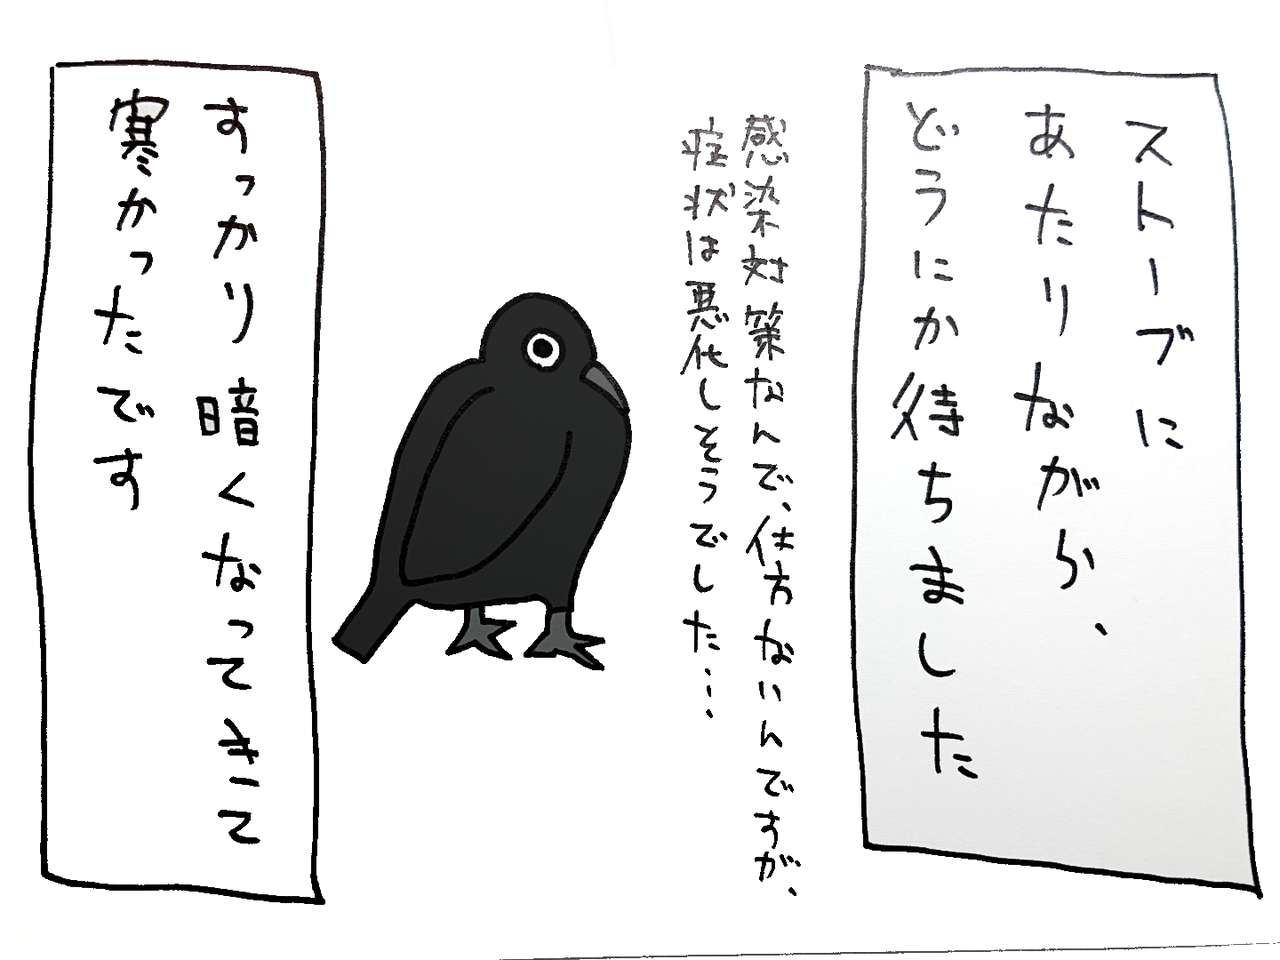 ストーブに
あたりながら、
どうにか待ちました
感染対策なんで、仕方ないんですが、
症状は悪化しそうでした…
すっかり暗くなってきて
寒かったです